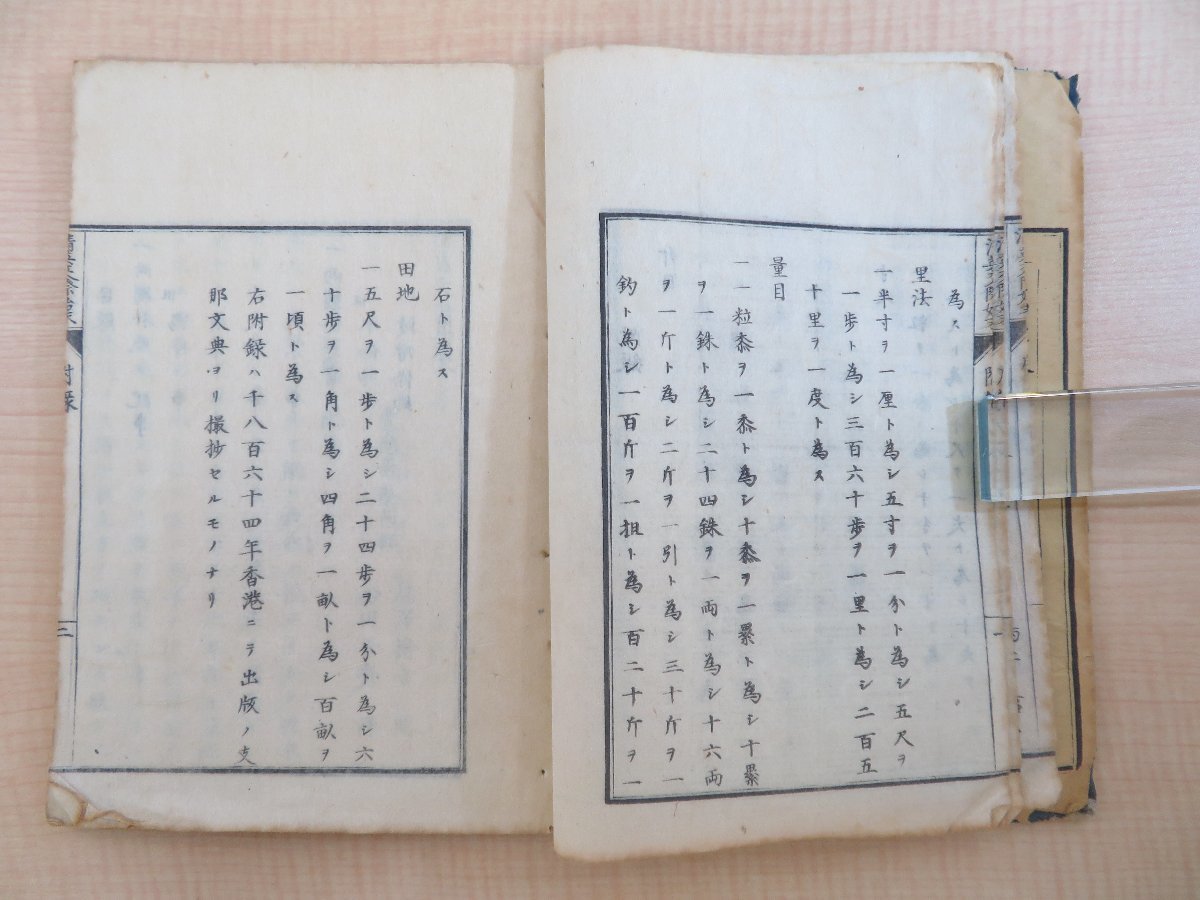 為ス
里法
一半寸ヲ一厘ト為シ五寸ヲ一分ト為シ五尺ヲ
一歩ト為シ三百六十歩ヲ一里ト為シ二百五
十里ヲ一度ト為ス
量目
一一粒黍ヲ一黍ト為シ十黍ヲ一累ト為シ十累
ヲ一銖ト為シ二十四銖ヲ一両ト為シ十六両
ヲ一斤ト為シ二斤ヲ一引ト為シ三十斤ヲ一
鈞ト為シ一百斤ヲ一担ト為シ百二十斤ヲ一
石ト為ス
田地
一五尺ヲ一歩ト為シ二十四歩ヲ一分ト為シ六
十歩ヲ一角ト為シ四角ヲ一畝ト為シ百畝ヲ
一頃ト為ス
右附録ハ千八百六十四年香港ニテ出版ノ支
那文典ヨリ撮抄セルモノナリ
附録
三